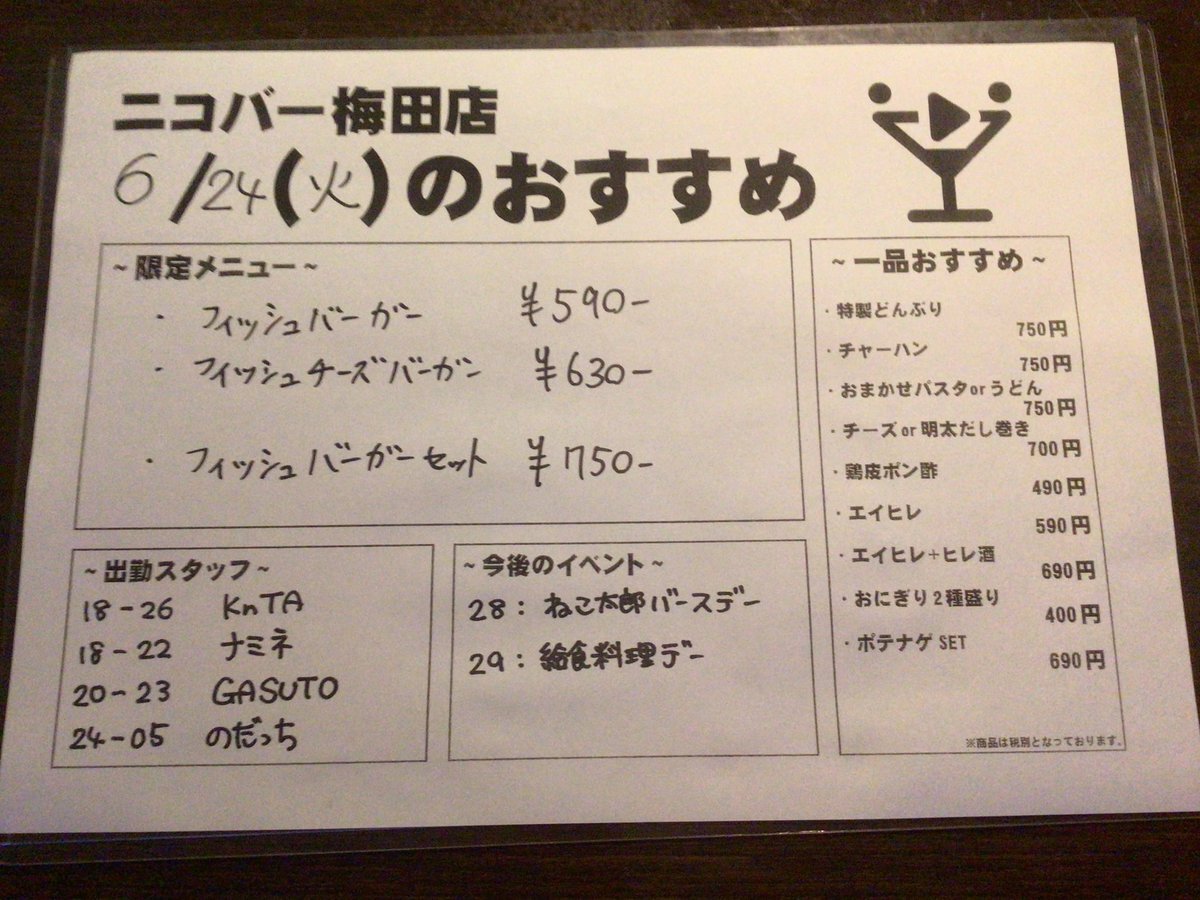 ニコバー梅田店
6/24(火)のおすすめ
~限定メニュー~
・フィッシュバーガー ¥590-
・フィッシュチーズバーガー ¥630-
・フィッシュバーガーセット ¥750-
~出勤スタッフ~
18-26 KnTA
18-22 ナミネ
20-23 GASUTO
24-05 のだっち
~今後のイベント~
28:ねこ太郎バースデー
29:給食料理デー
~一品おすすめ~
・特製どんぶり
750円
・チャーハン
750円
・おまかせパスタorうどん
750円
・チーズor明太だし巻き
700円
・鶏皮ポン酢
490円
・エイヒレ
590円
・エイヒレ+ヒレ酒
690円
・おにぎり2種盛り
400円
・ポテナゲSET
690円
※商品は税別となっております。